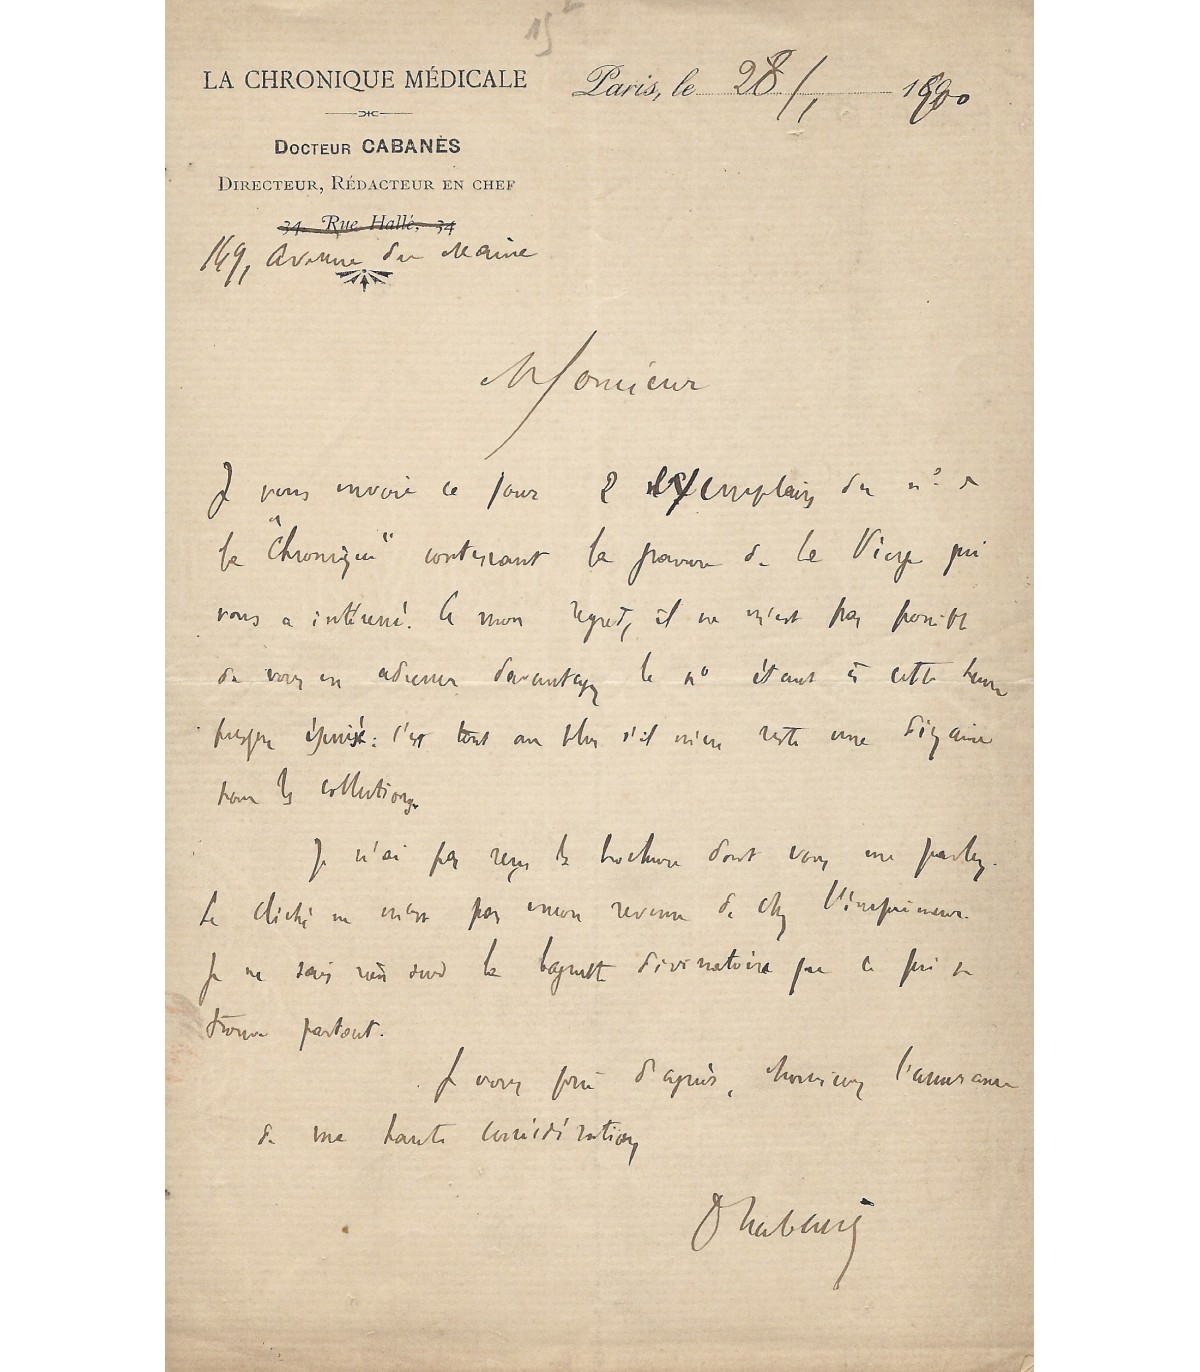 15
LA CHRONIQUE MÉDICALE
Paris, le 28/1 1900
DOCTEUR CABANÈS
DIRECTEUR, RÉDACTEUR EN CHEF
34, Rue Hallé, 34
149, Avenue du Maine
Monsieur
Je vous envoie ce jour 2 exemplaires du n° de
la "Chronique" contenant la gravure de la Vierge qui
vous a intéressé. A mon regret, il ne m'est pas possible
de vous en adresser davantage le n° étant à cette heure
presque épuisé: c'est tout au plus s'il m'en reste une dizaine
pour les collections.
Je n'ai pas reçu la brochure dont vous me parlez.
Le cliché ne m'est pas encore revenu de chez l'imprimeur.
Je ne sais rien sur la baguette divinatoire que ce qui se
trouve partout.
Je vous prie d'agréer, Monsieur, l'assurance
de ma haute considération
Dr Cabanès